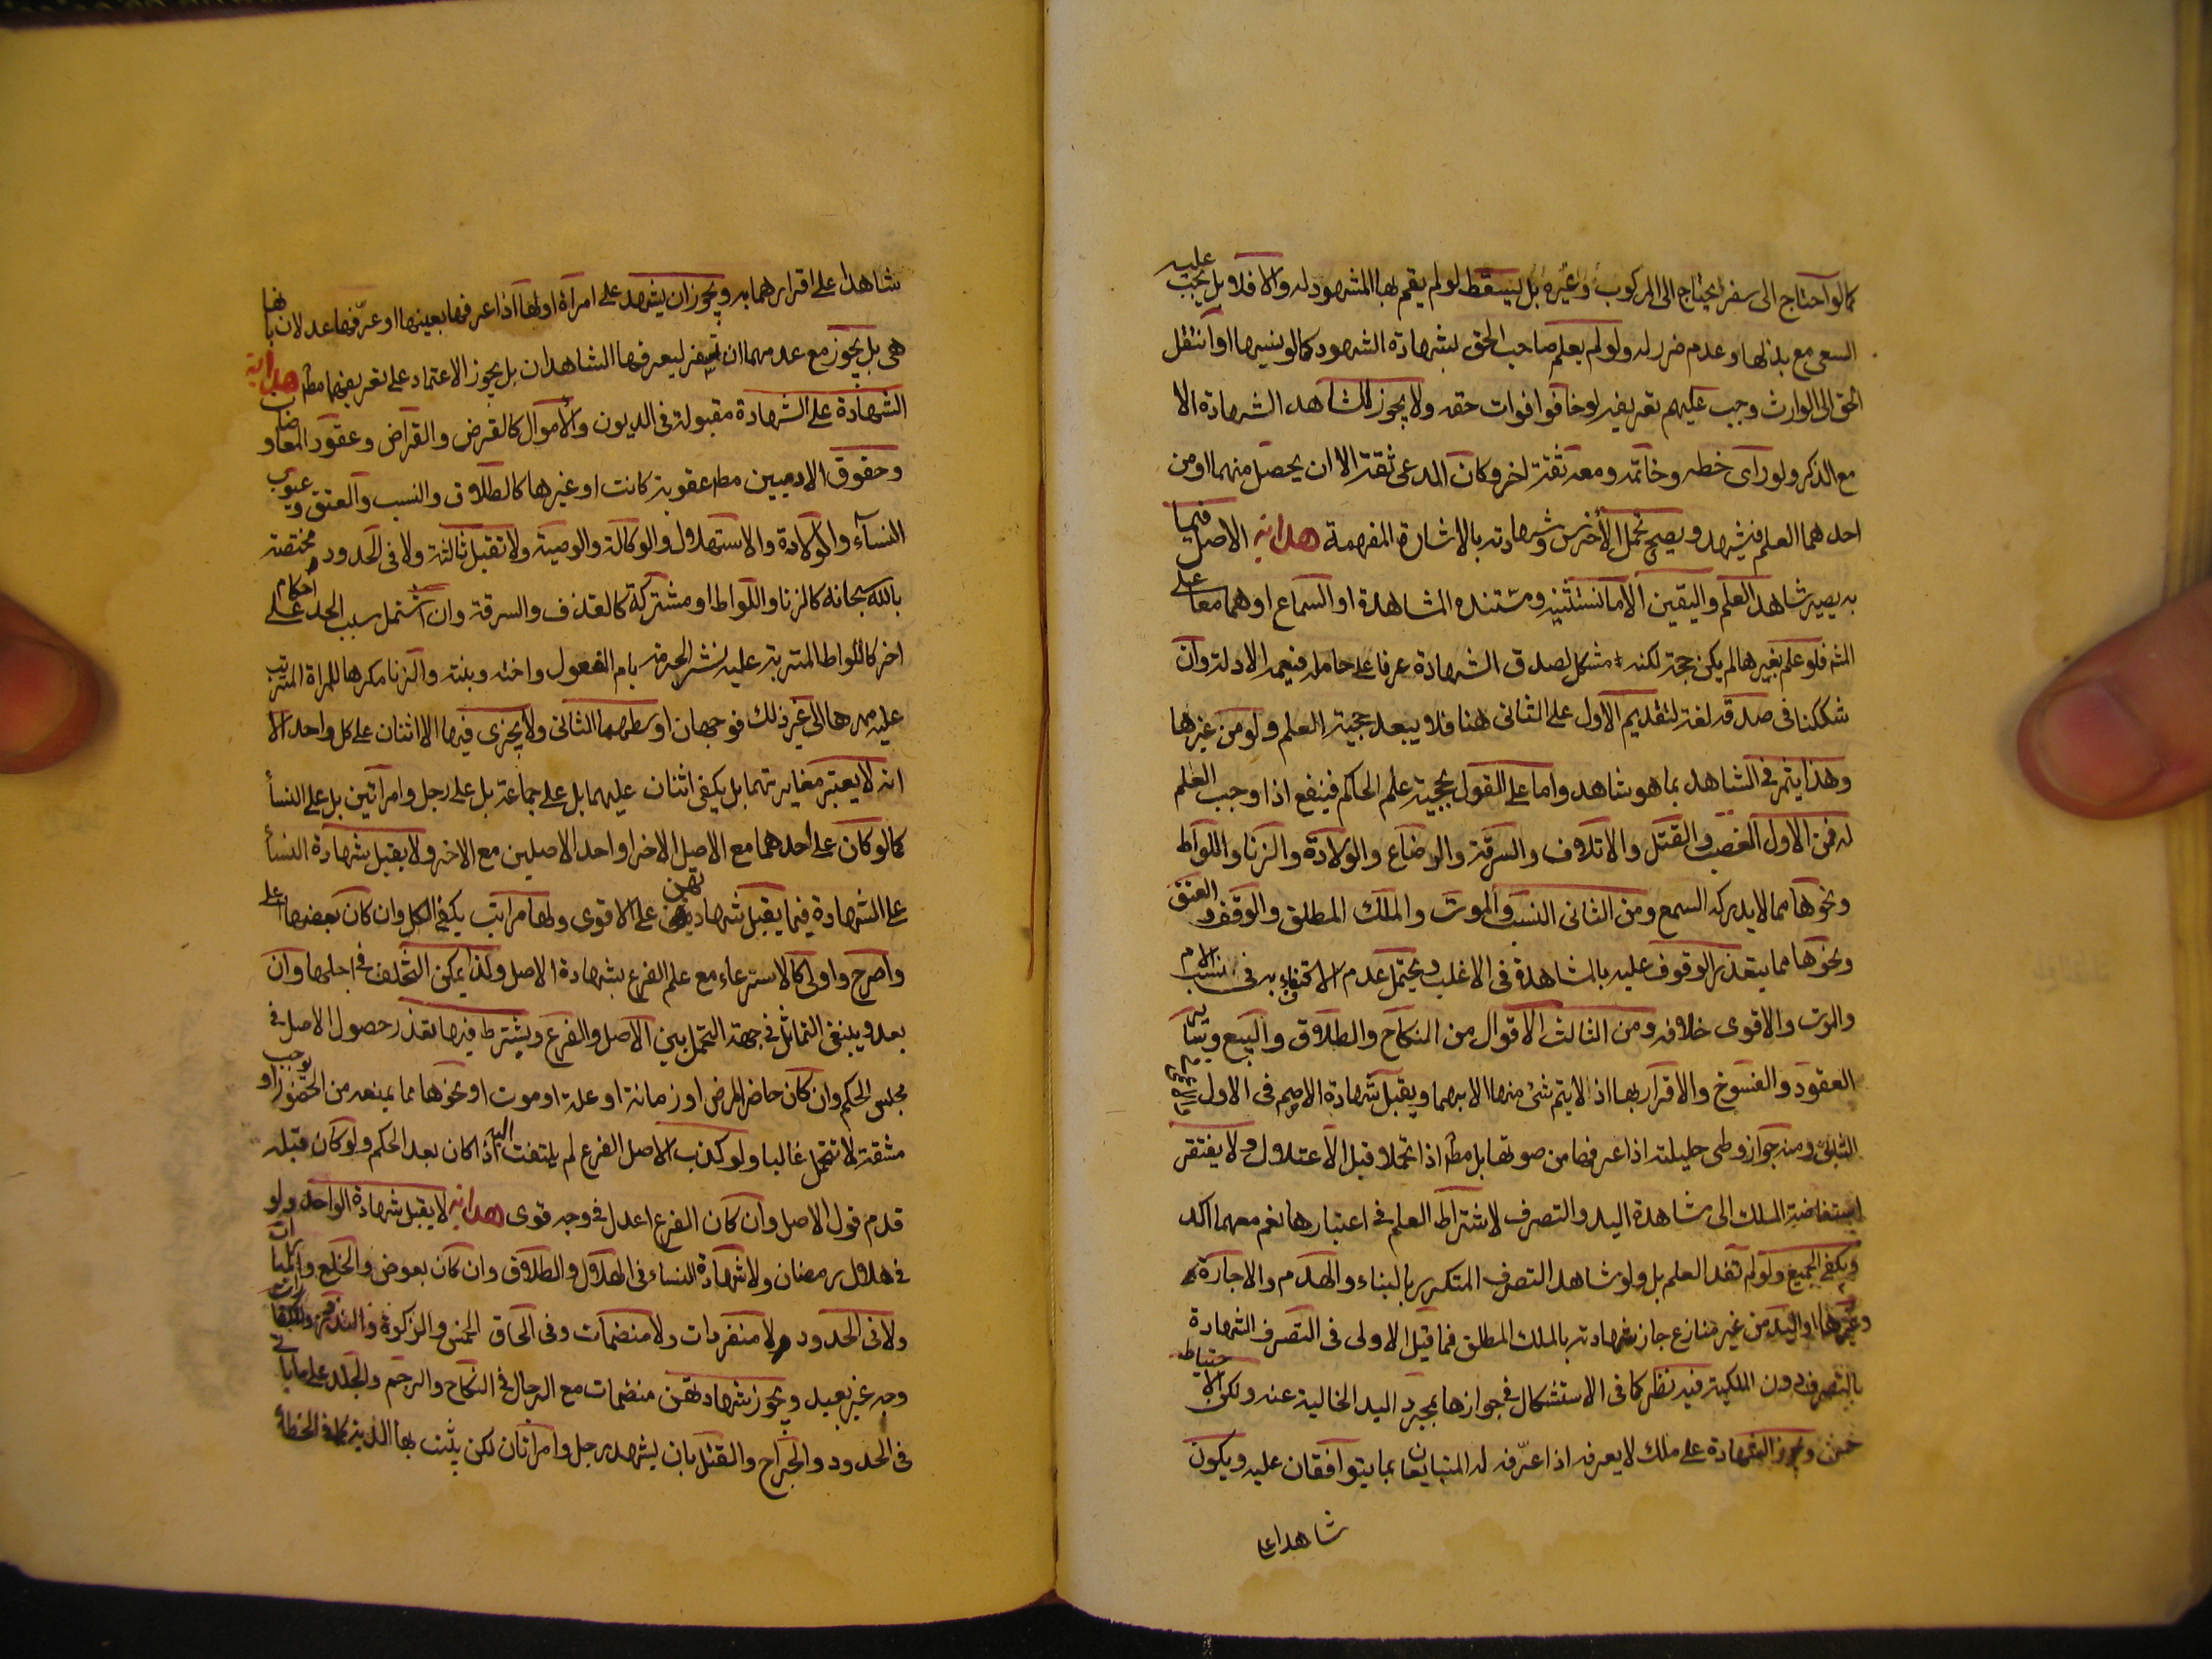 كما لو احتاج الى سفر يحتاج الى المركوب وغيره بل يسقط لو لم يقم بها المشهود له والا فلا وبل يجب عليه
السعى مع بذلها وعدم ضرر له ولو لم يعلم صاحب الحق بشهادة الشهود كما لو نسيها او انتقل
الحق الى الوارث وجب عليهم تعريفه لو خافوا فوات حقه ولا يجوز للشاهد الشهادة الا
مع الذكر ولو راى خطه وخاتمه ومعه ثقة اخر وكان المدعى ثقة الا ان يحصل منهما او من
احدهما العلم فيشهد ويصح تحمل الأخرس وشهادته بالاشارة المفهمة هداية الاصل فيما
به يصير شاهدا العلم واليقين الا ما نستثنيه ومستنده المشاهدة او السماع او هما معا على
المش فلو علم بغيرها لم يكن حجة لكنه مشكل لصدق الشهادة عرفا على حامله فيعمه الادلة وان
شككنا فى صدقه لغة لتقديم الاول على الثانى هنا فلا يبعد حجية العلم ولو من غيرها
وهذا يتم فى الشاهد بما هو شاهد واما على القول بحجية علم الحاكم فينفع اذا وجب العلم
له فمن الاول الغصب والقتل والاتلاف والسرقة والرضاع والولادة والزنا واللواط
ونحوها مما لا يدركه السمع ومن الثانى النسب والموت والملك المطلق والوقف و العتق
ونحوها مما يتعذر الوقوف عليه بالمشاهدة فى الاغلب ويحتمل عدم الاكتفاء به فى نسب الام
والموت والاقوى خلافه ومن الثالث الاقوال من النكاح والطلاق والبيع وسا ير
العقود والفسوخ والاقرار بها اذ لا يتم شئ منها الا بهما ويقبل شهادة الاصم فى الاول
ومنه جواز وطى حليلته اذا عرفها من صوتها بل مط اذا تحملا قبل الاعتلال ولا يفتقر
استفاضة الملك الى شاهدة اليد والتصرف لاشتراط العلم فى اعتبارها نعم معهما اكد
ويكفى الجميع ولو لم تفد العلم بل ولو شاهد التصرف المتكرر بالبناء والهدم والاجارة
وغيرها او اليد من غير منازع جاز شهادته بالملك المطلق فما قيل الاولى فى التصرف الشهادة
بالتصرف دون الملكية فيه نظر كما فى الاستشكال فى جوازها بمجرد اليد الخالية عنه ولكن الا حتياط
حسن ويجوز الشهادة على ملك لا يعرفه اذا عرّفه له المتبايعان بما يتوافقان عليه ويكون
شاهدا على
شاهدا على اقرارهما به ويجوز ان يشهد على امراة او لها اذا عرفها بعينها او عرّفها عدلان با نها
هى بل يجوز مع عدمهما ان تسفر ليعرفها الشاهدان بل يجوز الاعتماد على تعريفهما مط هداية
الشهادة على الشهادة مقبولة فى الديون والأموال كالقرض والقراض وعقود المعاو ضات
وحقوق الادميين مط عقوبة كانت او غيرها كالطلاق والنسب والعتق و عيوب
النسآء والولادة والاستهلال والوكالة والوصية ولا تقبل ثالثة ولا فى الحدود مختصة
بالله سبحانه كالزنا واللواط او مشتركة كالقذف والسرقة وان اشتمل سبب الحد على احكام
اخر كاللواط المترتبة عليه نشر الحرمة بام المفعول واخته وبنته والزنا مكرها للمراة المتر تب
عليه مهرها الى غير ذلك فوجهان اوسطهما الثانى ولا يجزى فيها الا اثنان على كل واحد الا
انه لا يعتبر مغايرتهما بل يكفى اثنان عليهما بل على جماعة بل على رجل وامراتين بل على النسأ
كما لو كان على احدهما مع الاصل الاخر او احد الاصلين مع الاخر ولا يقبل شهادة النسأ
على الشهادة فيما يقبل شهاد تهن على الاقوى ولها مراتب يكفى الكل وان كان بعضها اعلى
واصرح واولى كالاسترعاء مع علم الفرع بشهادة الاصل ولذا يمكن التخلف فى اجلها وان
بعد وينبغى التماثل فى جهة التحمل بين الاصل والفرع ويشترط فيها تعذر حصول الاصل فى
مجلس الحكم وان كان حاضرا لمرض او زمانة او علة او موت او نحوها مما يمنعه من الحضور او يوجب
مشقة لا تتحمل غالبا ولو كذب الاصل الفرع لم يلتفت اليه اذا كان بعد الحكم ولو كان قبله
قدم قول الاصل وان كان الفرع اعدل فى وجه قوى هداية لا يقبل شهادة الواحد ولو
فى هلال رمضان ولا شهادة النساء فى الهلال والطلاق وان كان بعوض والخلع والمبا رات
ولا فى الحدود لا منفردات ولا منضمات وفى الحاق الخمس والزكوة والنذر
وجه غير بعيد ويجوز شهادتهن منضمات مع الرجال فى النكاح والرجم والجلد على ما ياتى
فى الحدود والجراح والقتل بان يشهد رجل وامراتان لكن يثبت بها الدية كما فى الخطأ